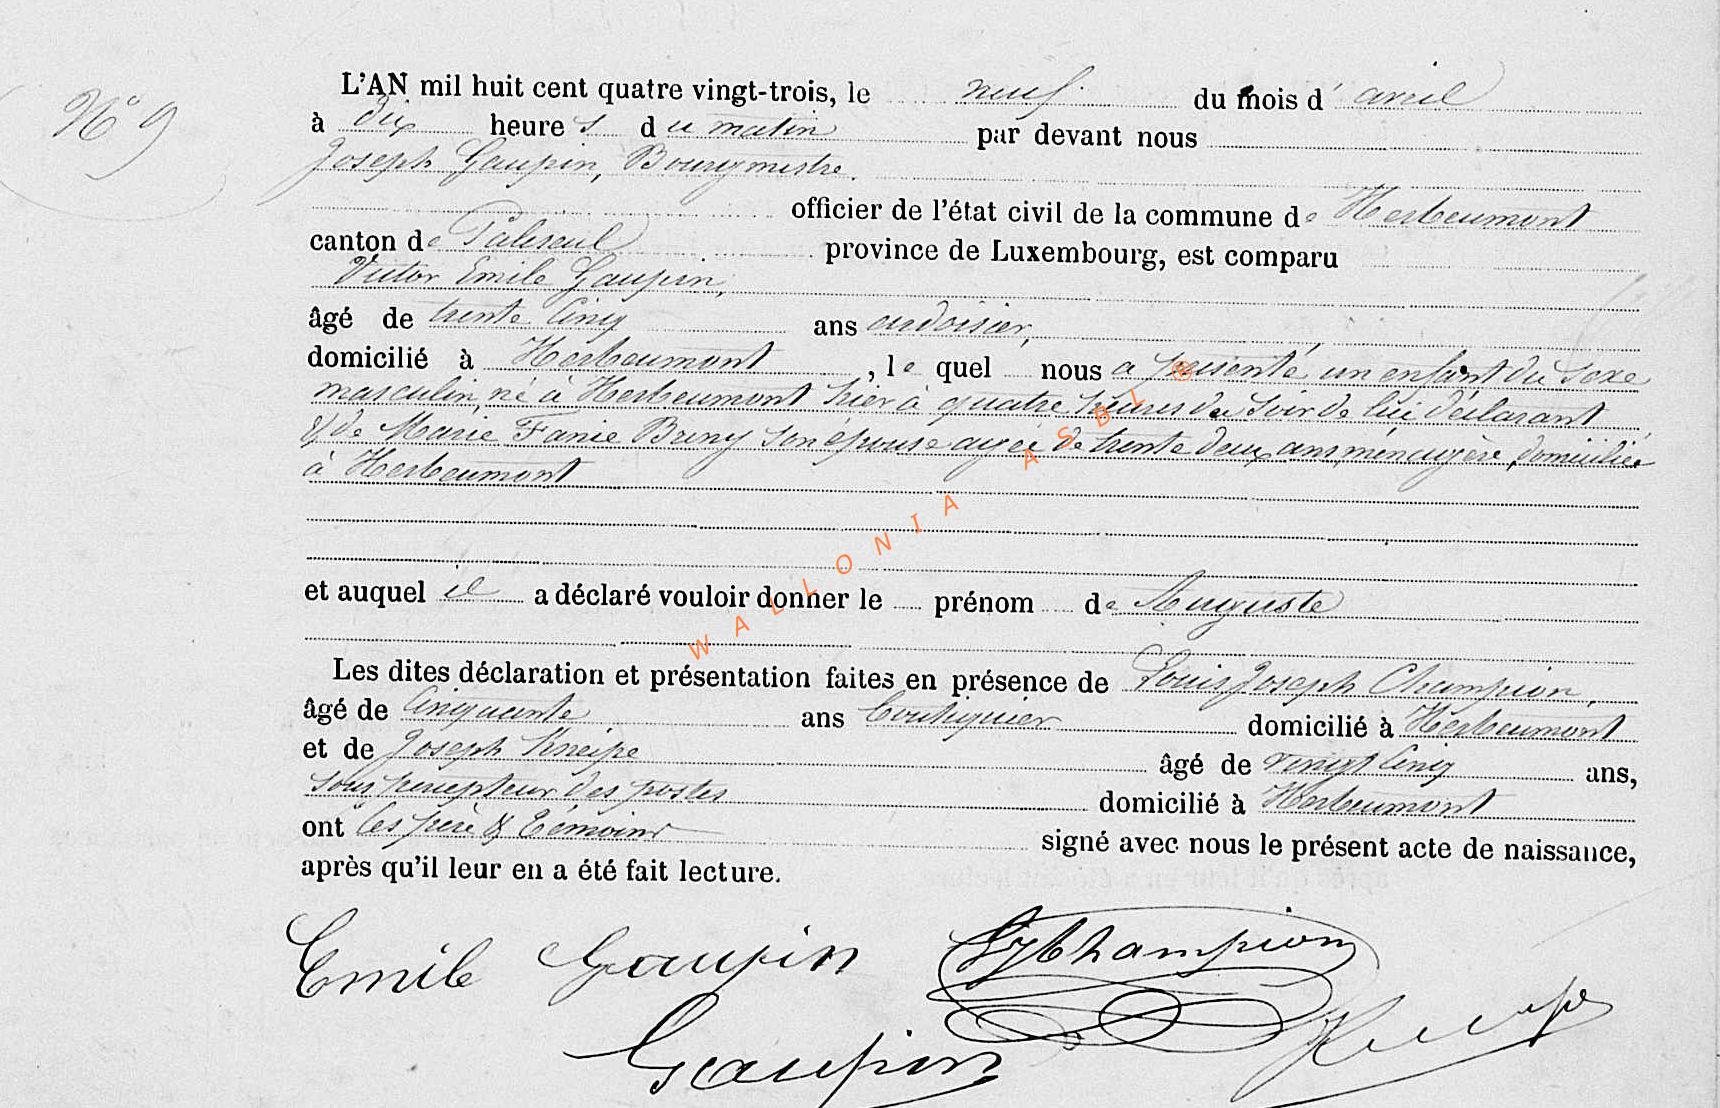 N° 9
L'AN mil huit cent quatre vingt-trois, le neuf du mois d'avril
à dix heures du matin par devant nous
Joseph Gaupin, Bourgmestre.
officier de l'état civil de la commune de Herbeumont
canton de Paliseul province de Luxembourg, est comparu
Victor Emile Gaupin,
âgé de trente cinq ans ardoisier,
domicilié à Herbeumont, le quel nous a présenté un enfant du sexe
masculin, né à Herbeumont hier à quatre heures du soir de lui déclarant
& de Marie Fanie Briny son épouse agée de trente deux ans, ménagère, domiciliée
à Herbeumont
et auquel il a déclaré vouloir donner le prénom de Auguste
Les dites déclaration et présentation faites en présence de Louis Joseph Champion,
âgé de Cinquante ans boutiquier domicilié à Herbeumont
et de Joseph Kneipe âgé de vingt cinq ans,
sous percepteur des postes domicilié à Herbeumont
ont les père & témoins signé avec nous le présent acte de naissance,
après qu'il leur en a été fait lecture.
Emile Gaupin LJChampion
Gaupin Kneipe
WALLONIA ASBL ®